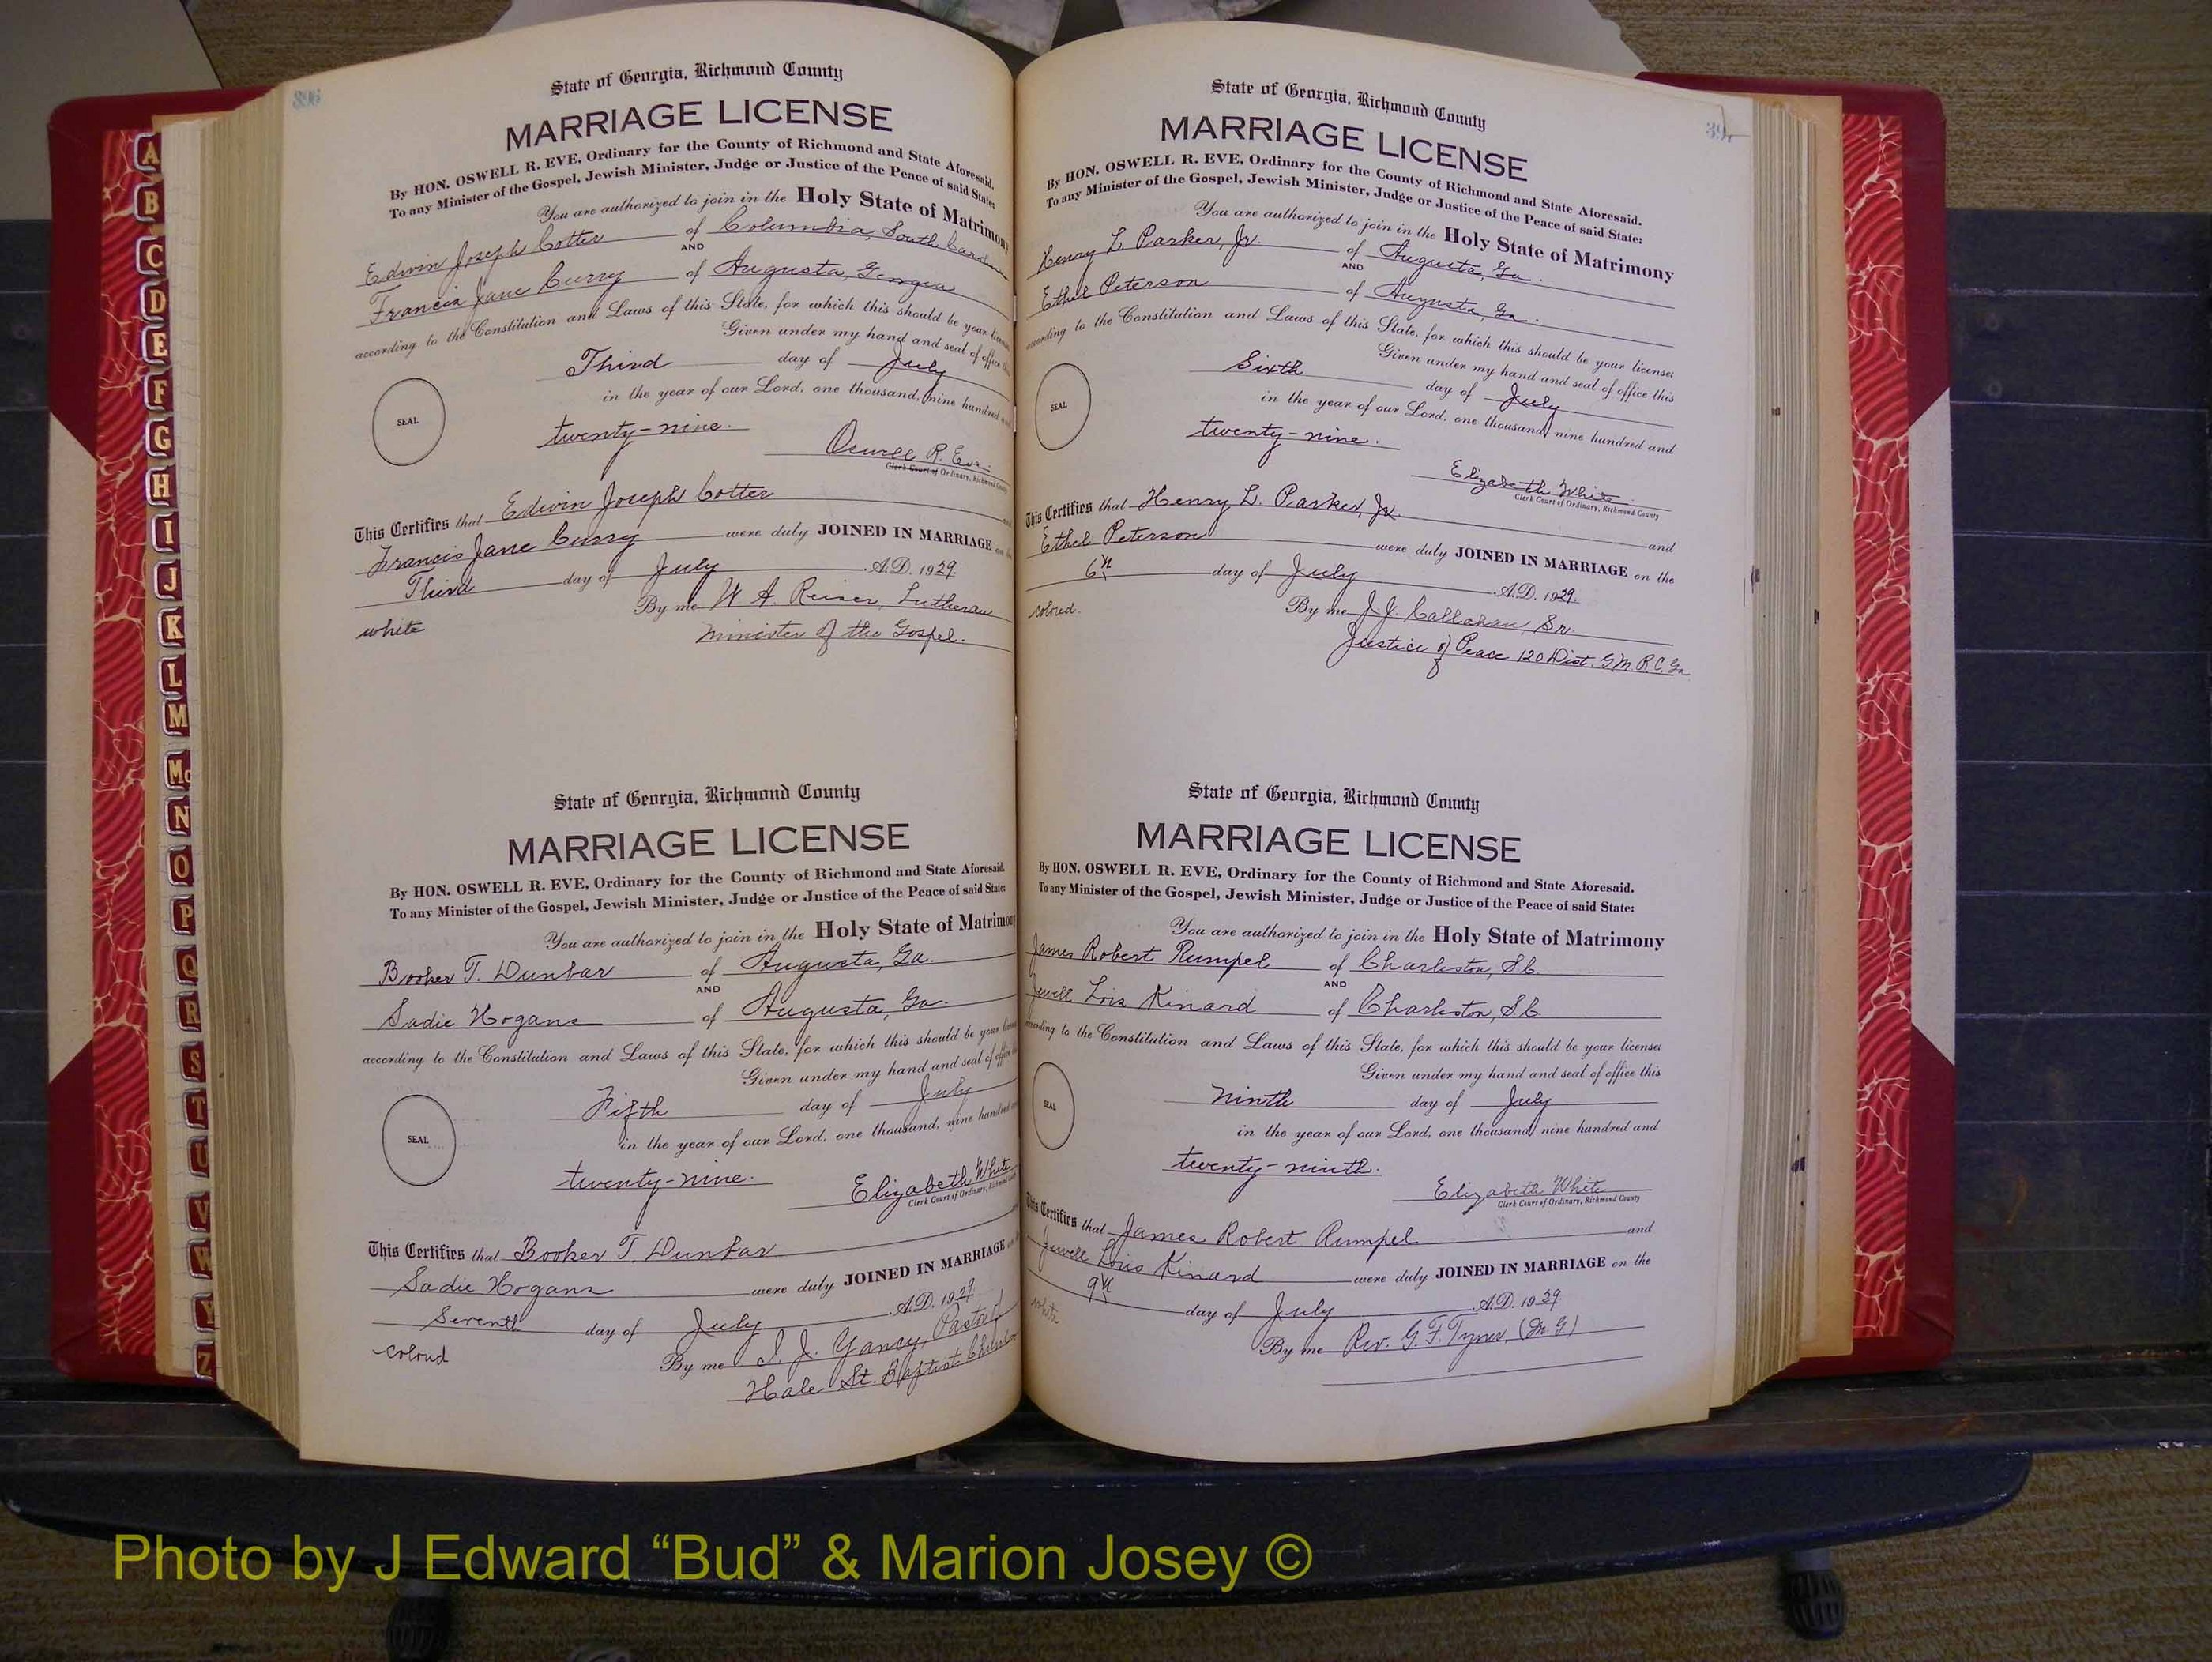 396
State of Georgia, Richmond County
MARRIAGE LICENSE
By HON. OSWELL R. EVE, Ordinary for the County of Richmond and State Aforesaid.
To any Minister of the Gospel, Jewish Minister, Judge or Justice of the Peace of said State:
You are authorized to join in the Holy State of Matrimony
Edwin Joseph Cotter of Columbia, South Carolina
AND
Francis Jane Curry of Augusta, Georgia
according to the Constitution and Laws of this State, for which this should be your license
Given under my hand and seal of office this
Third day of July
in the year of our Lord, one thousand, nine hundred
SEAL
twenty-nine.
Oswell R. Eve
Clerk Court of Ordinary, Richmond County
This Certifies that Edwin Joseph Cotter
Francis Jane Curry were duly JOINED IN MARRIAGE on
Third day of July A.D. 1929.
By me W. A. Reiser, Lutheran
white
Minister of the Gospel.
State of Georgia, Richmond County
MARRIAGE LICENSE
By HON. OSWELL R. EVE, Ordinary for the County of Richmond and State Aforesaid.
To any Minister of the Gospel, Jewish Minister, Judge or Justice of the Peace of said State:
You are authorized to join in the Holy State of Matrimony
Booker T. Dunbar of Augusta, Ga.
AND
Sadie Hogans of Augusta, Ga.
according to the Constitution and Laws of this State, for which this should be your license
Given under my hand and seal of office
Fifth day of July
in the year of our Lord, one thousand, nine hundred
SEAL
twenty-nine.
Elizabeth White
Clerk Court of Ordinary, Richmond County
This Certifies that Booker T. Dunbar
Sadie Hogans were duly JOINED IN MARRIAGE
Seventh day of July A.D. 1929.
colored
By me S. J. Yancy, Pastor
Hale St. Baptist Church
State of Georgia, Richmond County
MARRIAGE LICENSE
By HON. OSWELL R. EVE, Ordinary for the County of Richmond and State Aforesaid.
To any Minister of the Gospel, Jewish Minister, Judge or Justice of the Peace of said State:
You are authorized to join in the Holy State of Matrimony
Henry L. Parker, Jr. of Augusta, Ga.
AND
Ethel Peterson of Augusta, Ga.
according to the Constitution and Laws of this State, for which this should be your license:
Given under my hand and seal of office this
Sixth day of July
in the year of our Lord, one thousand, nine hundred and
SEAL
twenty-nine.
Elizabeth White
Clerk Court of Ordinary, Richmond County
This Certifies that Henry L. Parker, Jr. and
Ethel Peterson were duly JOINED IN MARRIAGE on the
6th day of July A.D. 1929.
colored.
By me J. J. Callahan, Sr.
Justice of Peace 120 Dist. G.M. R.C. Ga
State of Georgia, Richmond County
MARRIAGE LICENSE
By HON. OSWELL R. EVE, Ordinary for the County of Richmond and State Aforesaid.
To any Minister of the Gospel, Jewish Minister, Judge or Justice of the Peace of said State:
You are authorized to join in the Holy State of Matrimony
James Robert Rumpel of Charleston, S.C.
AND
Jewell Lois Kinard of Charleston, S.C.
according to the Constitution and Laws of this State, for which this should be your license:
Given under my hand and seal of office this
ninth day of July
in the year of our Lord, one thousand, nine hundred and
SEAL
twenty-ninth.
Elizabeth White
Clerk Court of Ordinary, Richmond County
This Certifies that James Robert Rumpel and
Jewell Lois Kinard were duly JOINED IN MARRIAGE on the
9th day of July A.D. 1929.
white
By me Rev. G. F. Tyner, (M G)
A
B
C
D
E
F
G
H
I
J
K
L
M
Mc
N
O
P
Q
R
S
T
U
V
W
Y
Z
Photo by J Edward “Bud” & Marion Josey ©